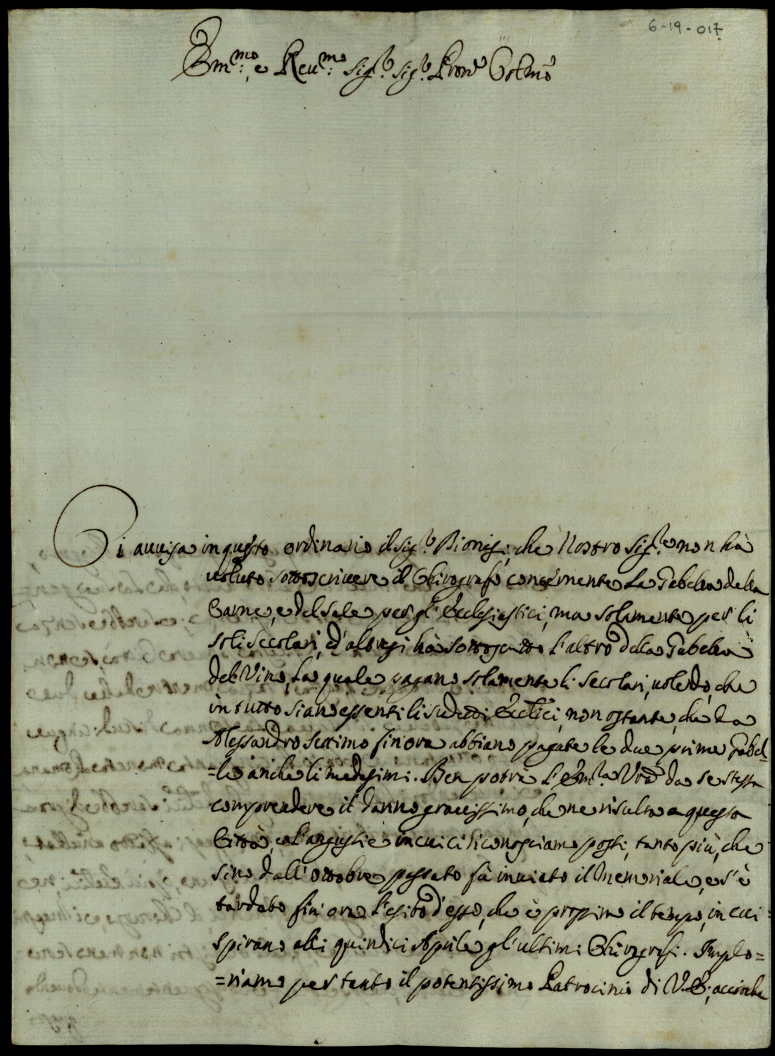 6-19-017
Em.mo e Reu.mo Sig.r Sig.r Pron.e Colmo
Ci auuisa in questo ordinario il Sig.r Dionigi, che Nostro Sig.re non hà
uoluto sottoscriuere il Chirografo concernente la Gabella della
Carne, e del sale per gl'Ecclesiastici, ma solamente per li
soli Secolari, ed' hà l'altro della Gabella
del Vino, la quale pagano solamente li secolari, uolendo, che
in tutto siano essenti li sudetti Ecclici, non ostante, che da
Alessandro Settimo fin ora abbiano pagate le due prime Gabel=
=le anche li medesimi. Ben potrà l'Em.a V.ra da se stessa
comprendere il danno grauissimo, che ne risulta a questa
Città, e l'angustie in cui ci riconosciamo posti, tanto più, che
sino dall'ottobre passato fù inuiato il Memoriale, e s'è
tardato fin ora l'esito d'esso, che è prossimo il tempo, in cui
spirano alli quindici Aprile gl'ultimi Chirografi. Implo=
=riamo per tanto il potentissimo Patrocinio di V.E., accioche